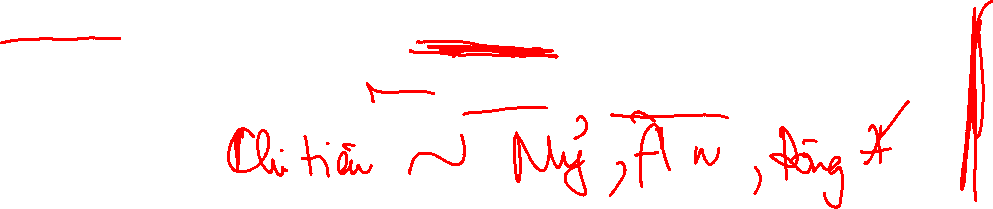 Chi tiền ~ Mỹ, Ấn, Đông Á